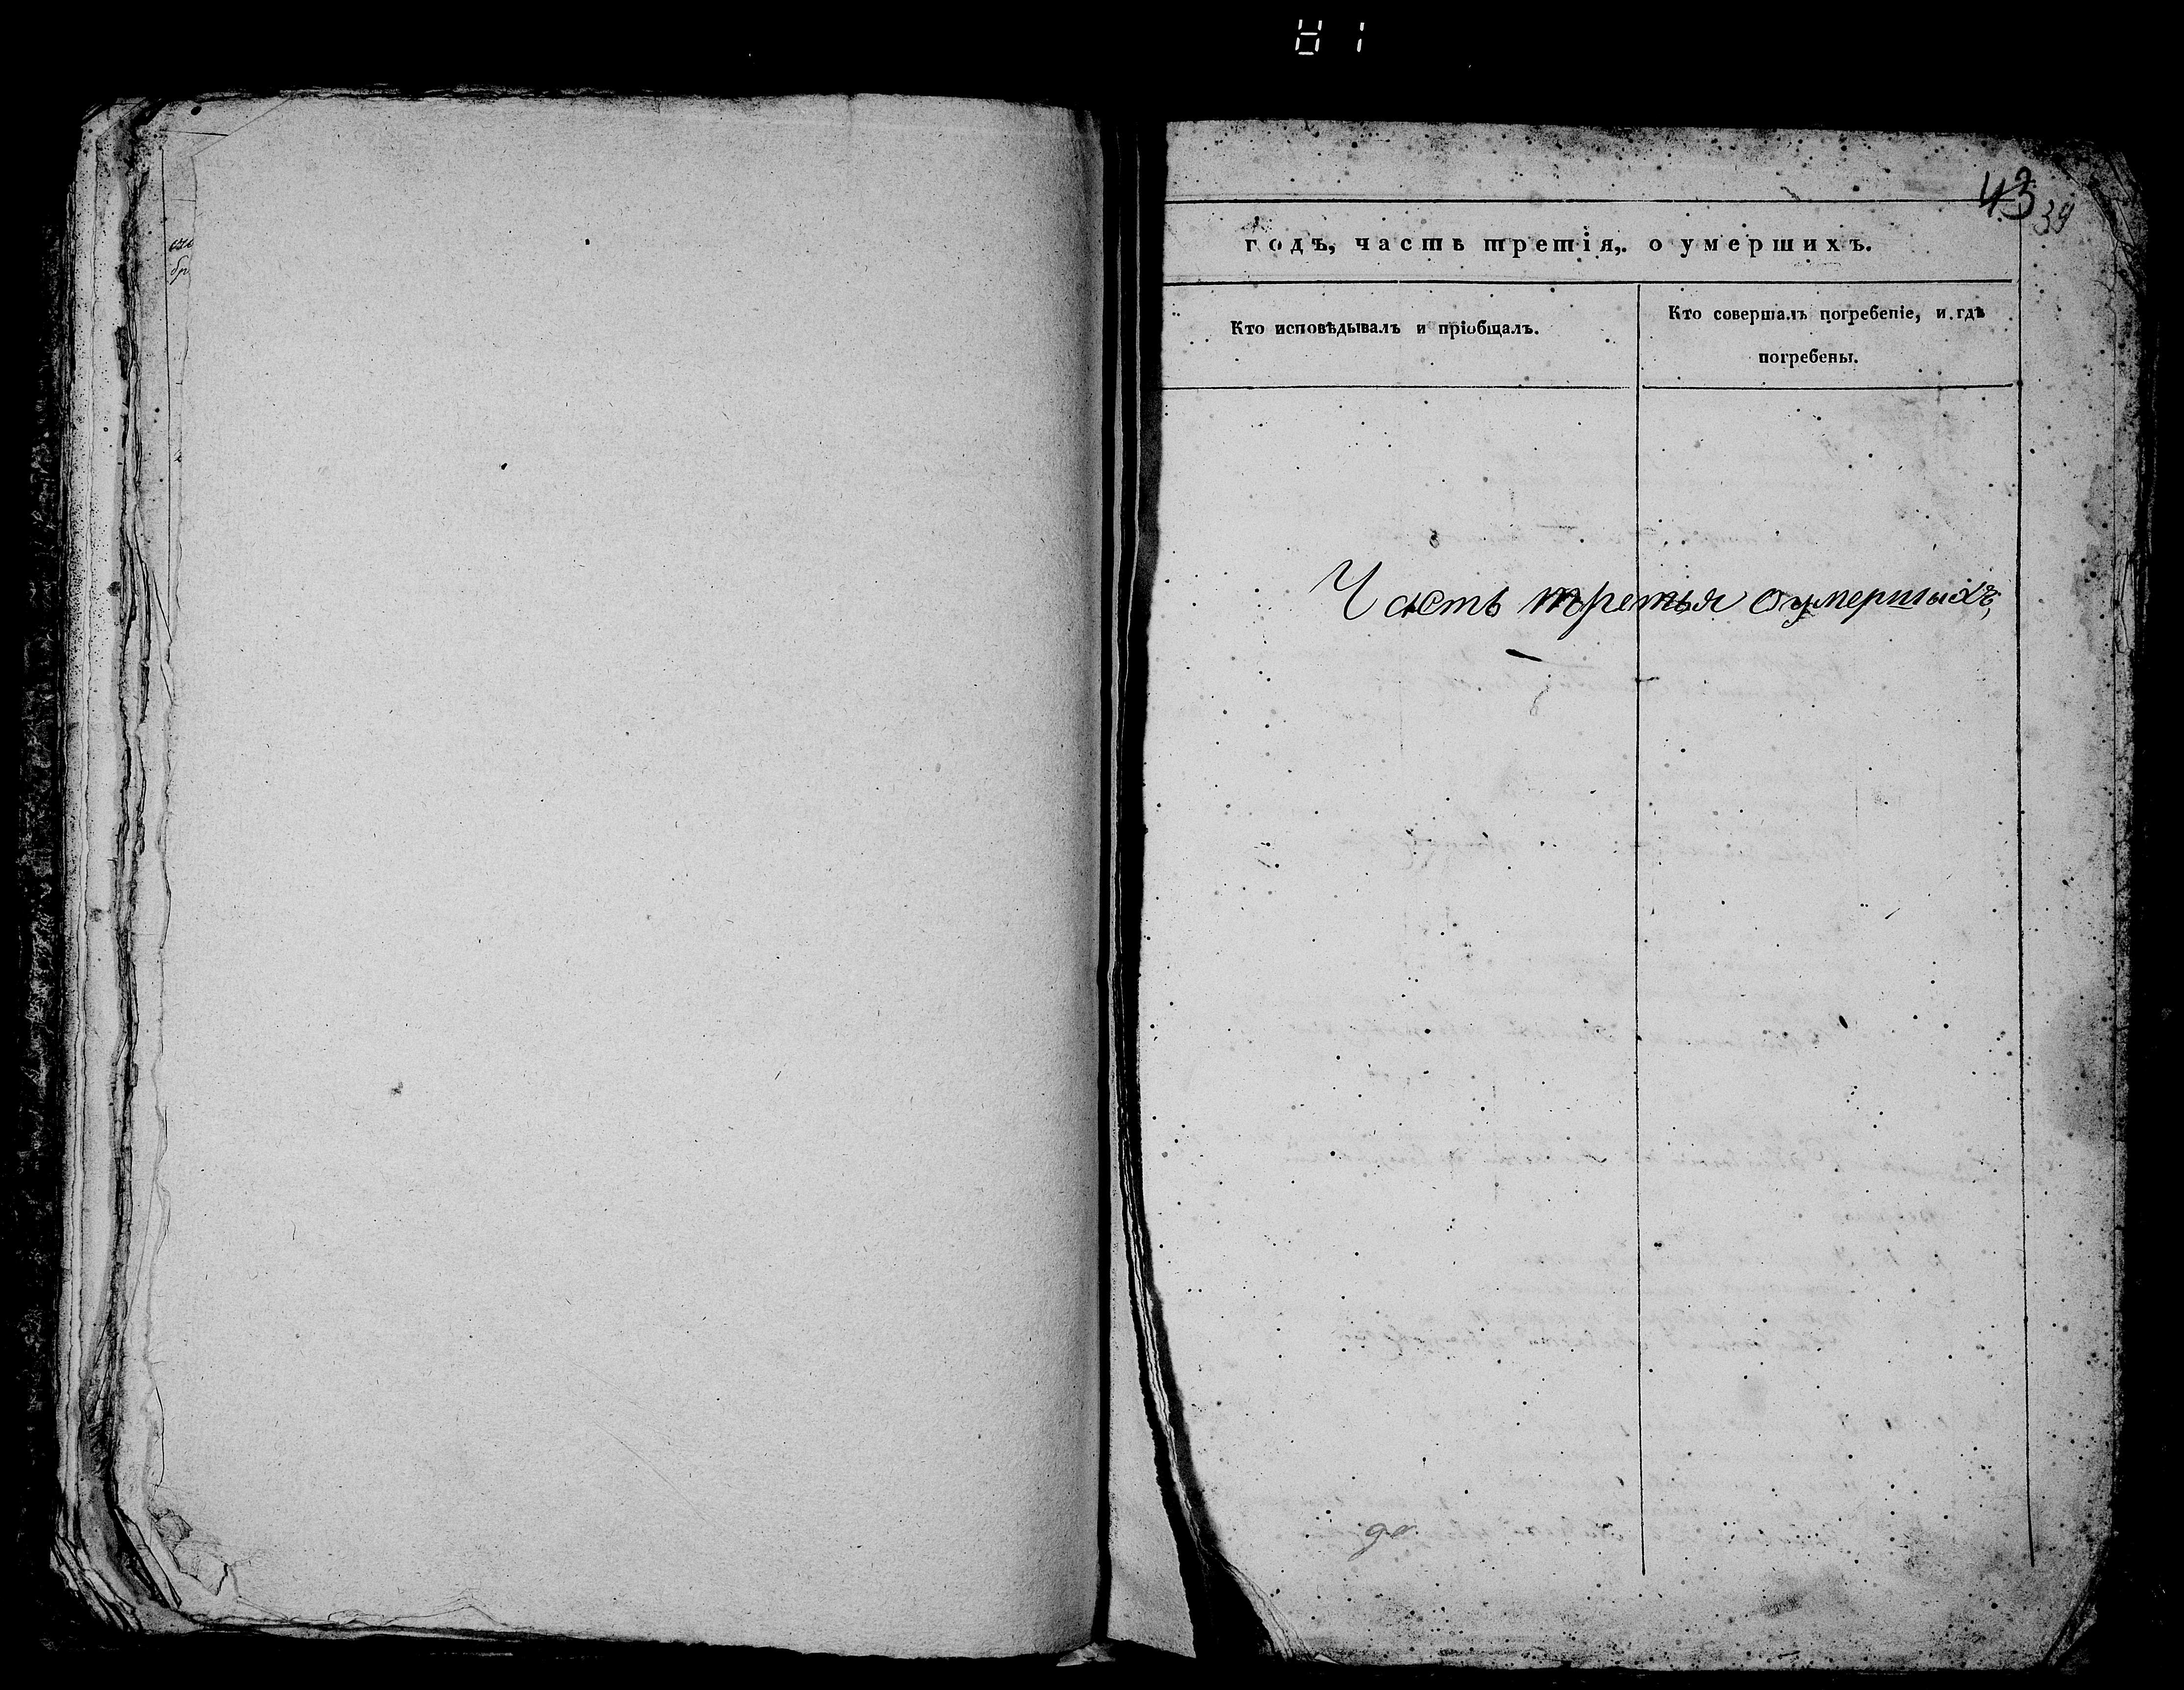 43
39
годъ, часть третія, о умершихъ.
Кто исповѣдывалъ и пріобщалъ.
Кто совершалъ погребеніе, и гдѣ
погребены.
Часть третья о умершихъ,